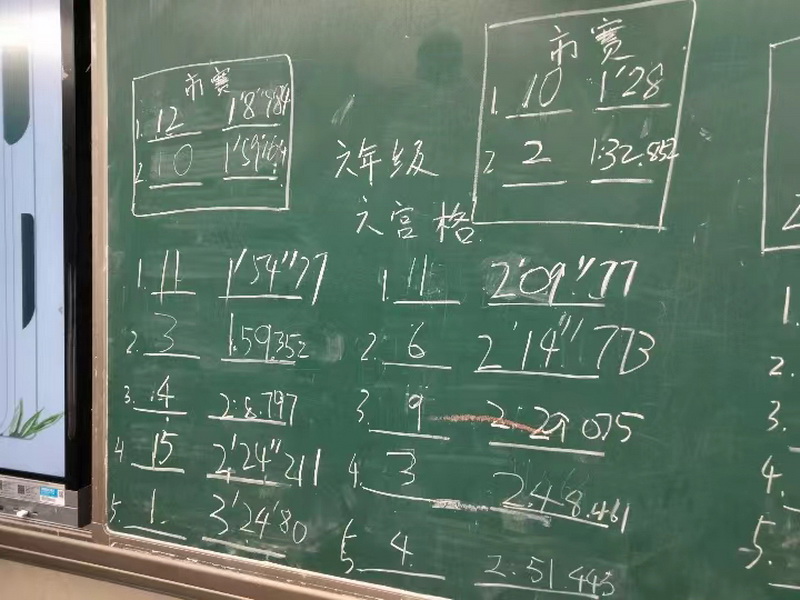 市赛
1. 12 1'8"984
2. 10 1'59"
市赛
1. 10 1'28
2. 2 1:32.852
六年级
六宫格
1. 11 1'54"77
2. 3 1:59.352
3. 4 2:8.797
4. 15 2'24"211
5. 1 3'24'80
1. 11 2'09."77
2. 6 2'14"773
3. 9 2:29 075
4. 3 2:48.461
5. 4 2:51.445
1.
2.
3.
4.
5.